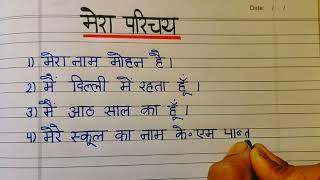 मेरा परिचय
Date: / /
1) मेरा नाम मोहन है।
2) मैं दिल्ली में रहता हूँ।
3) मैं आठ साल का हूँ।
4) मेरे स्कूल का नाम के॰ एम